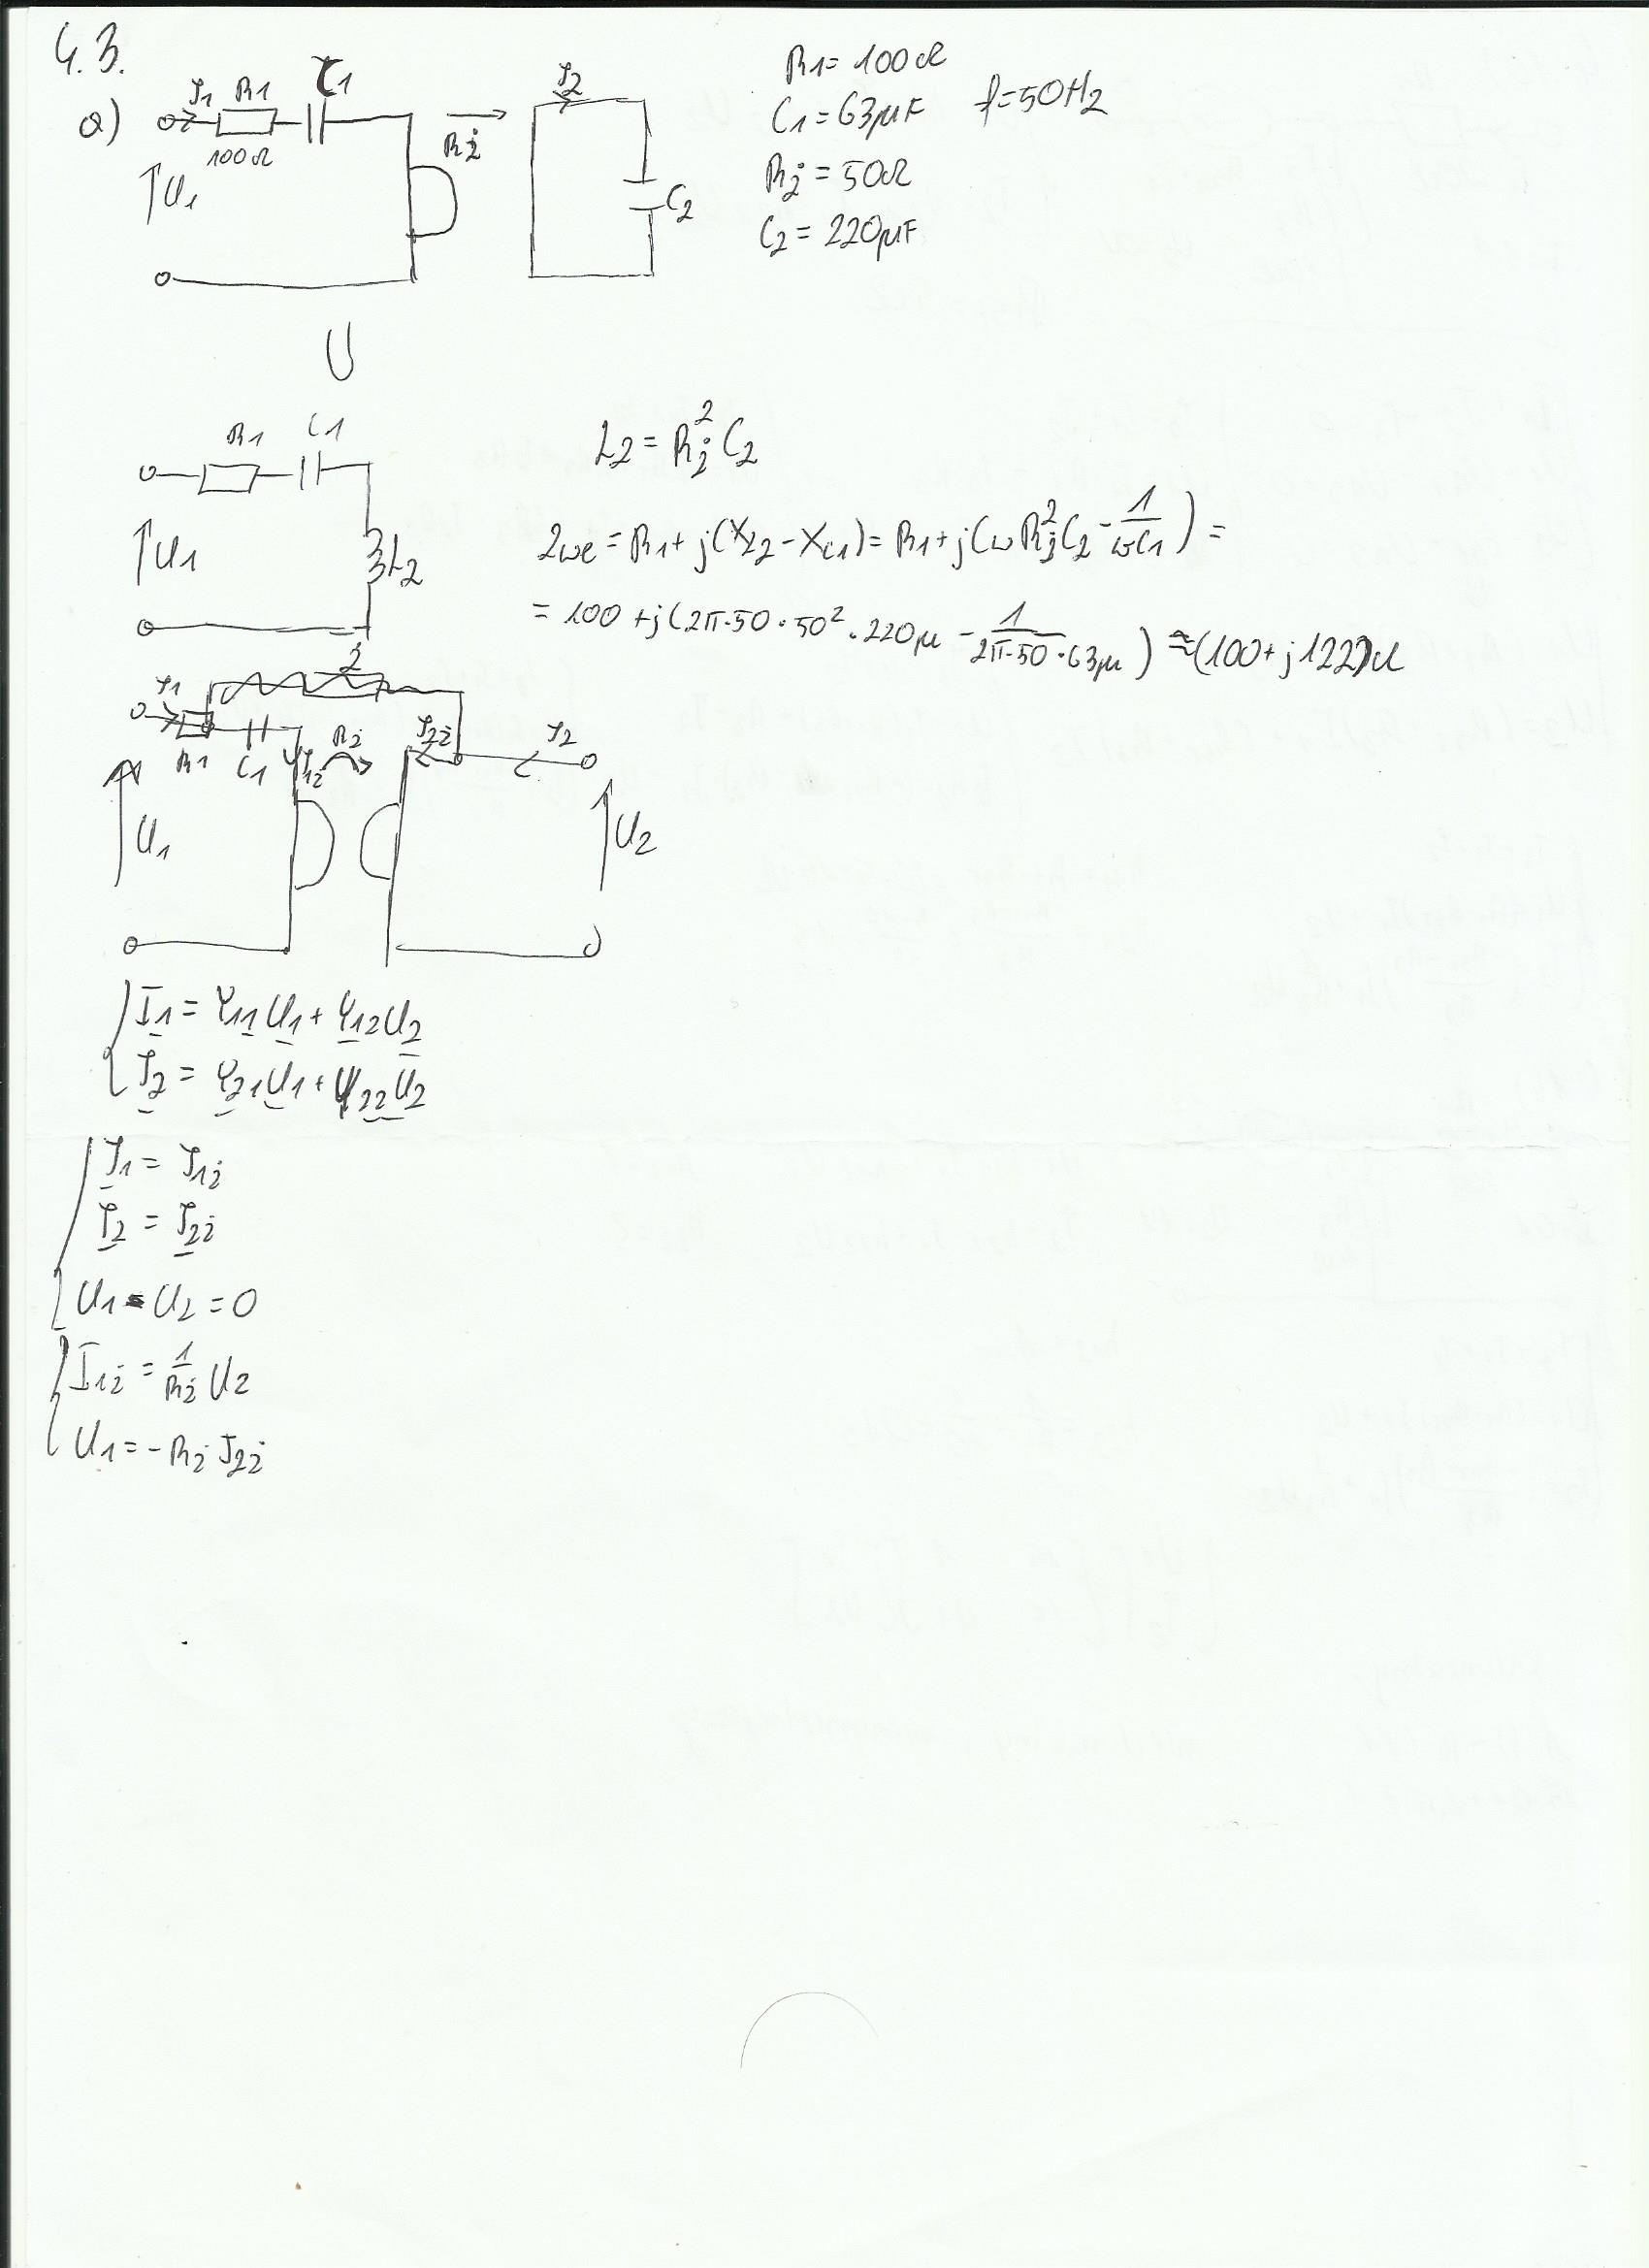 4.3.
a)
I1 R1 C1
100Ω
U1
Rż
I2
C2
R1 = 100Ω
C1 = 63μF f = 50Hz
Rż = 50Ω
C2 = 220μF
R1 C1
U1
L2
L2 = Rż² C2
Zwe = R1 + j(XL2 - XC1) = R1 + j(ωRż²C2 - 1/ωC1) =
= 100 + j(2π·50·50²·220μ - 1/2π·50·63μ) ≈ (100 + j122)Ω
I1 Z
R1 C1 I1ż Rż I2ż I2
U1
U2
I1 = Y11 U1 + Y12 U2
I2 = Y21 U1 + Y22 U2
I1 = I1ż
I2 = I2ż
U1 - U2 = 0
I1ż = 1/Rż U2
U1 = -Rż I2ż